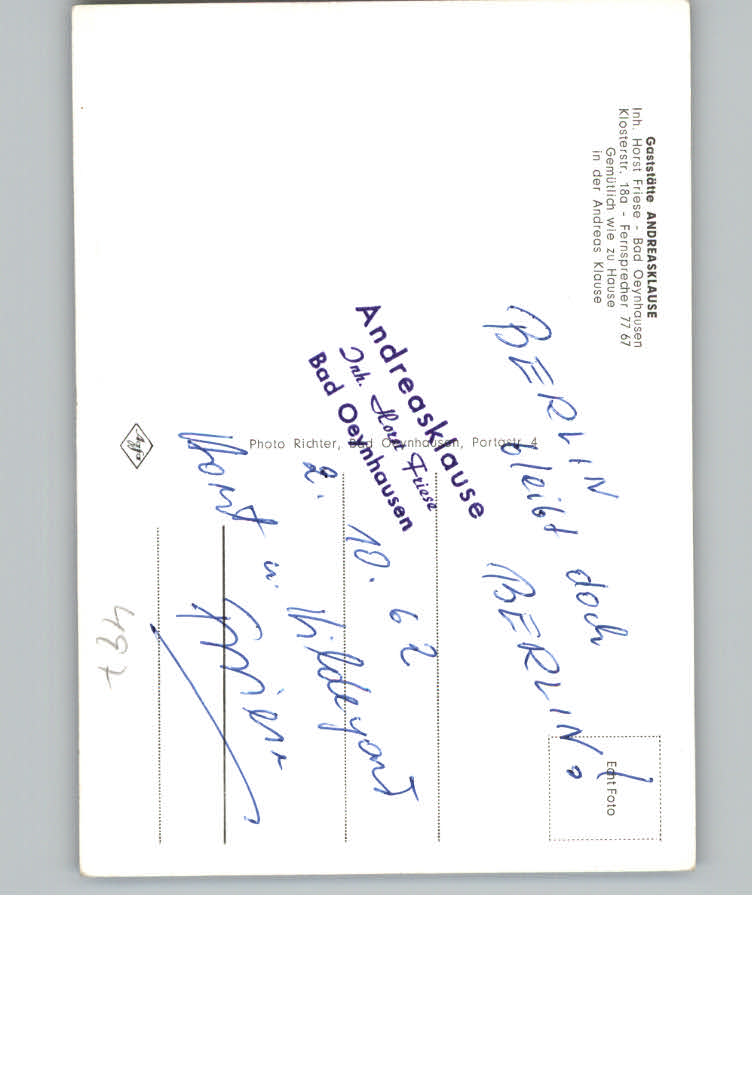 Gaststätte ANDREASKLAUSE
Inh. Horst Friese - Bad Oeynhausen
Klosterstr. 18a - Fernsprecher 77 67
Gemütlich wie zu Hause
in der Andreas Klause
BERLIN bleibt doch
BERLIN!
Echt Foto
Andreasklause
Inh. Horst Friese
Bad Oeynhausen
2. 10. 62
Horst u. Hildegard
Friese
Photo Richter, Bad Oeynhausen, Portastr. 4
Agfa
487